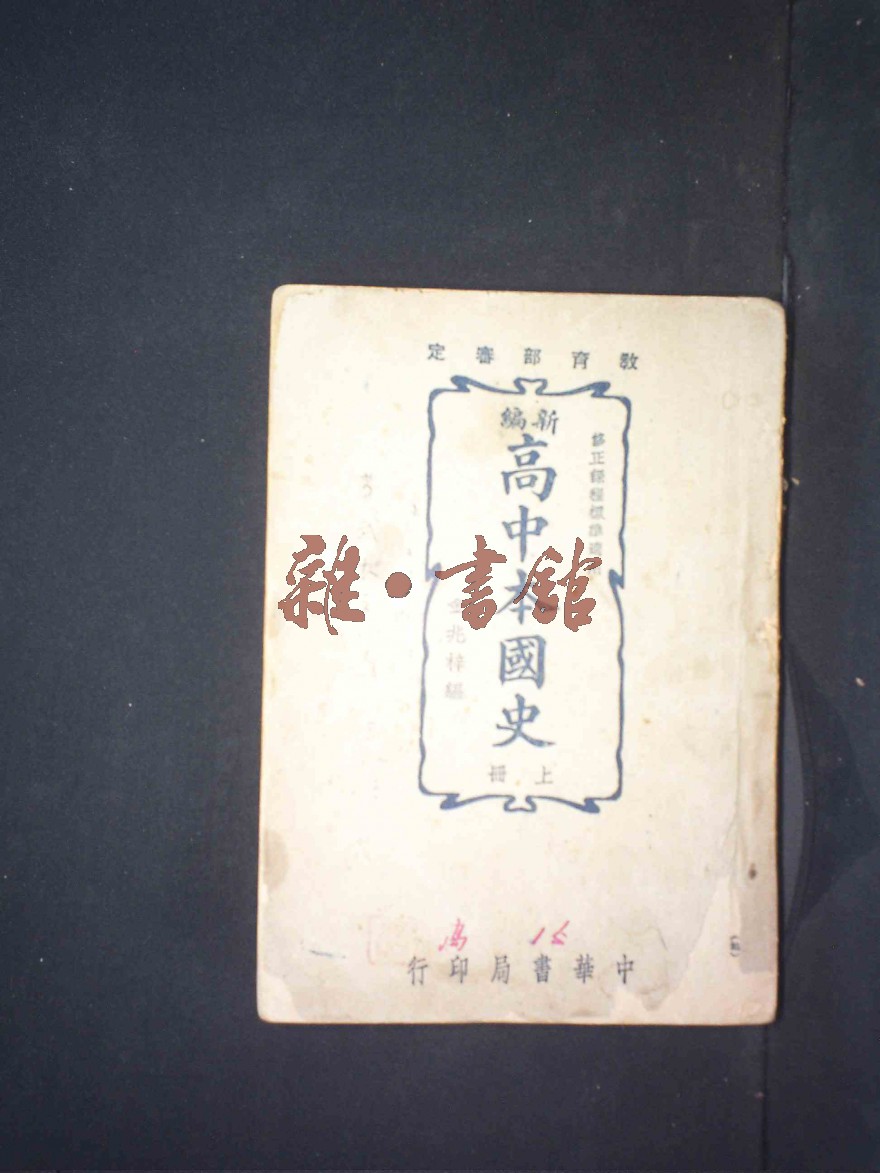 教育部審定
修正課程標準適用
新編
高中本國史
上冊
金兆梓編
雜·書館
中華書局印行